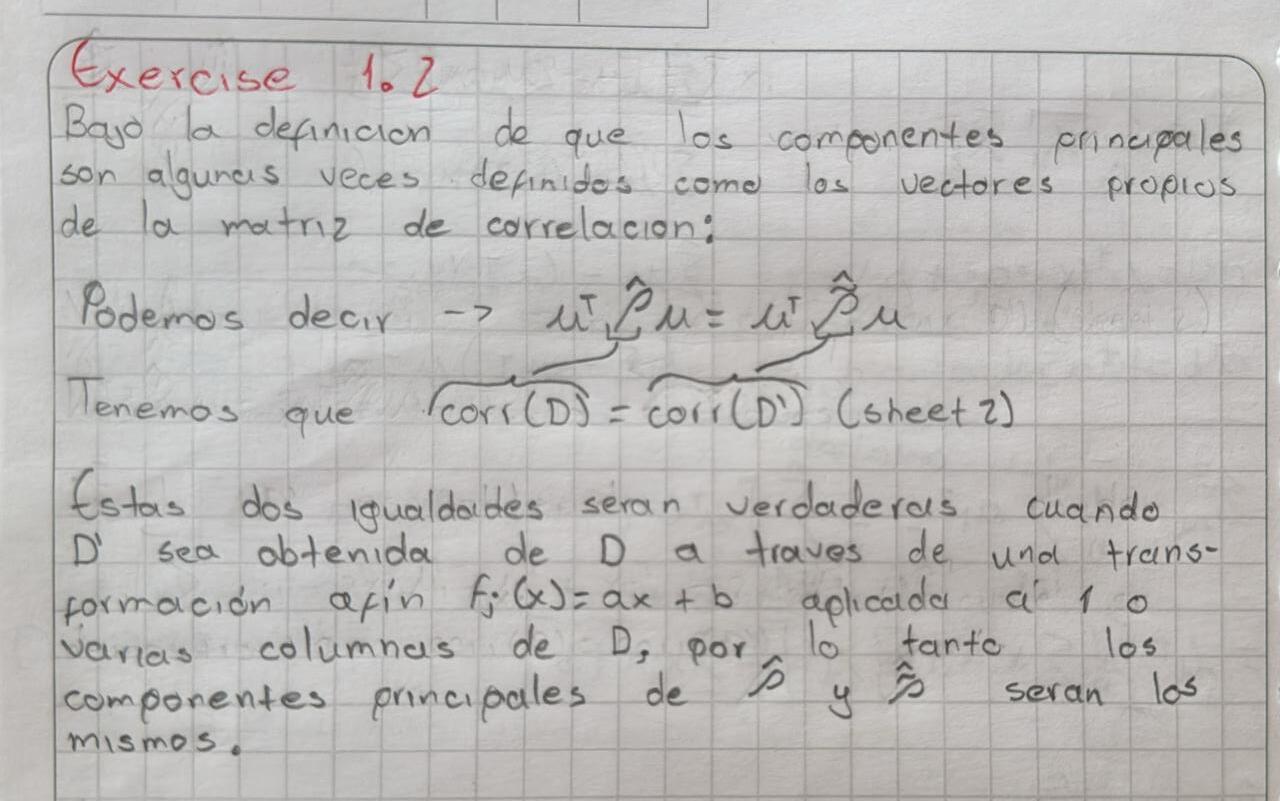 Exercise 1.2
Bajo la definicion de que los componentes principales
son algunas veces definidos como los vectores propios
de la matriz de correlacion:
Podemos decir -> u^T ρ̂ u = u^T ρ̂̂ u
Tenemos que corr(D) = corr(D') (sheet 2)
Estas dos igualdades seran verdaderas cuando
D' sea obtenida de D a traves de una trans-
formación afín fj(x)=ax+b aplicada a 1 o
varias columnas de D, por lo tanto los
componentes principales de ρ̂ y ρ̂̂ seran los
mismos.